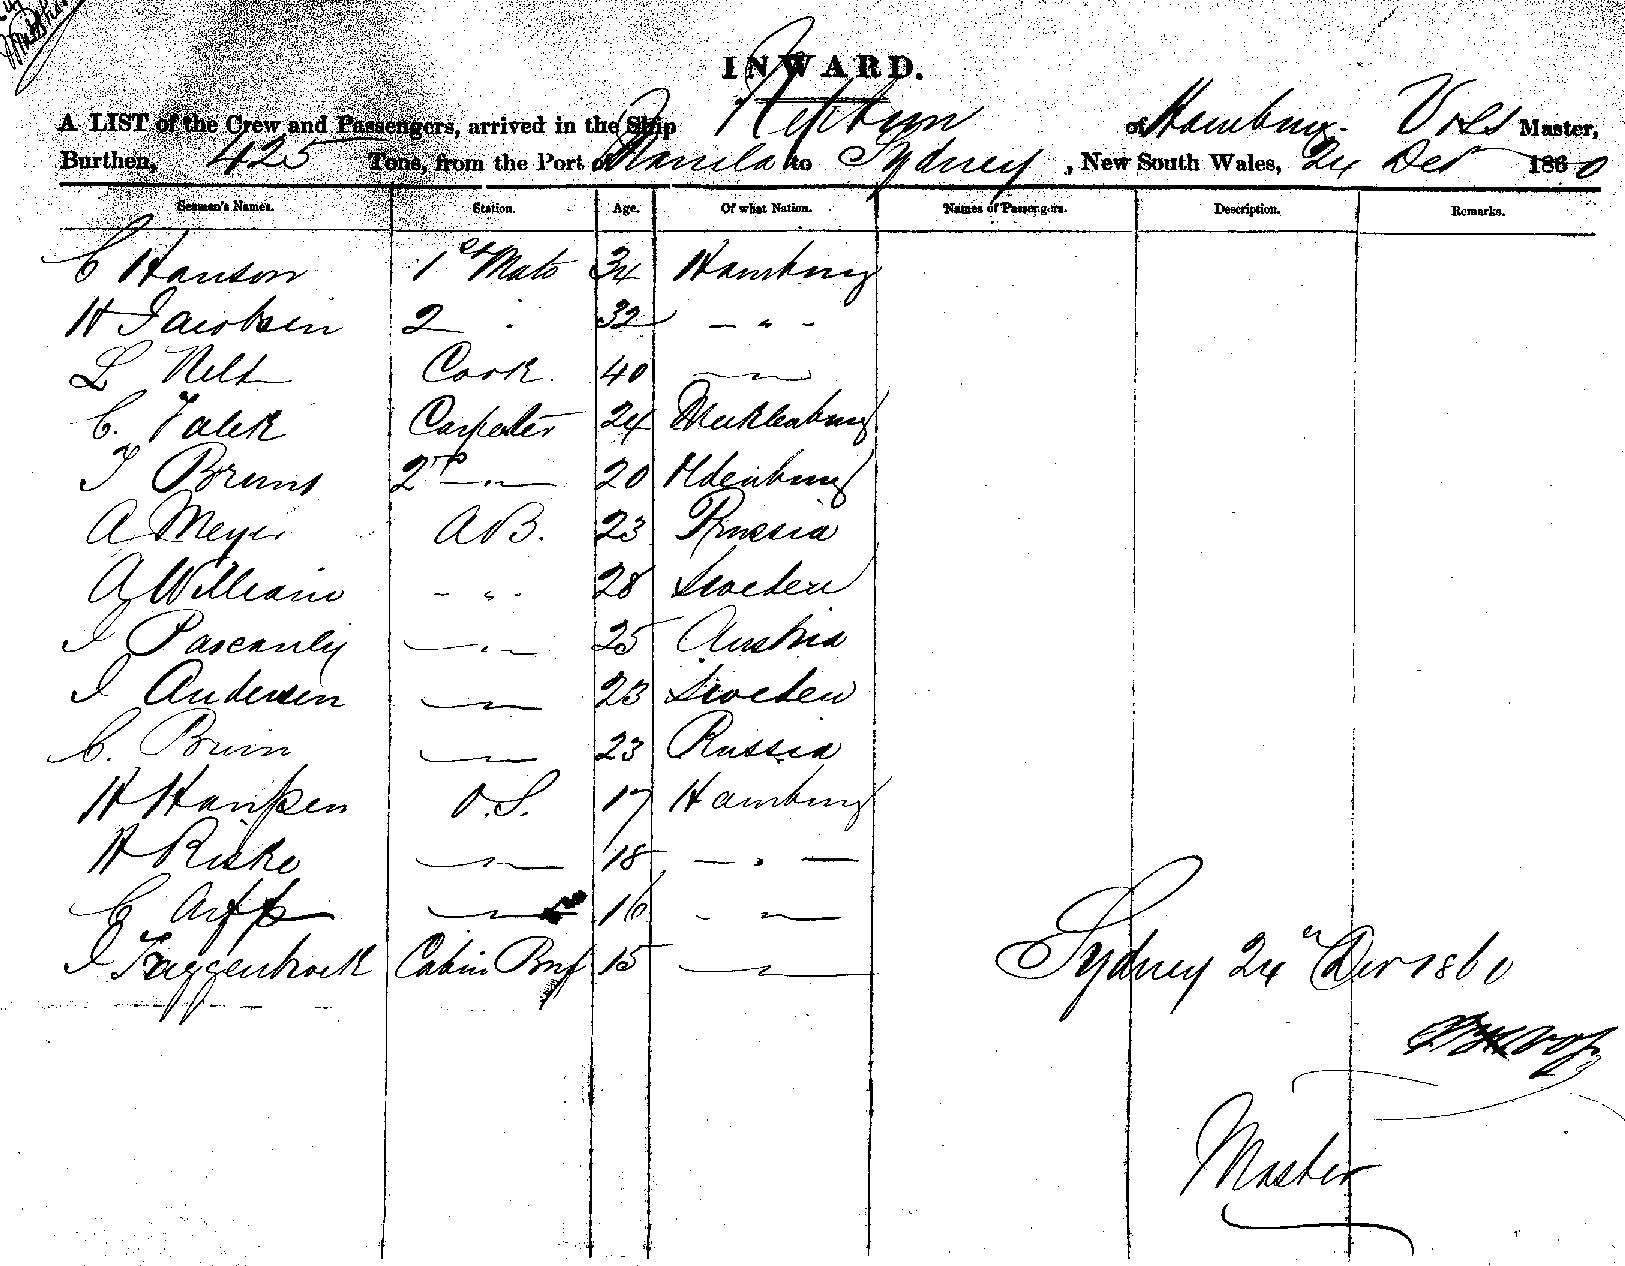 INWARD.
A LIST of the Crew and Passengers, arrived in the Ship Neptun of Hamburg Voss Master,
Burthen, 425 Tons, from the Port of Manila to Sydney, New South Wales, 24 Decr 1860
Seamen's Names. Station. Age. Of what Nation. Names of Passengers. Description. Remarks.
C Hanson 1st Mate 34 Hamburg
H Jacobsen 2 " 32 - " -
L Nelt Cook 40 - " -
C. Falck Carpenter 24 Mecklenburg
J Bruns 2nd - " - 20 Oldenburg
A Meyer A B. 23 Prussia
A William - " - 28 Sweden
I 25 Austria
I Andersen - " - 23 Sweden
C. 23 Russia
H Hansen O.S. 17 Hamburg
H Riske - " - 18 - " -
C Arff - " - 16 - " -
I Cabin Boy 15 - " -
Sydney 24th Decr 1860
Master